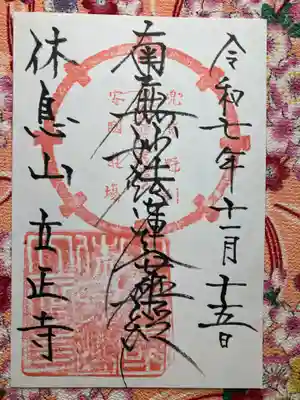 令和七年十一月十五日
南無妙法蓮華経
休息山 立正寺